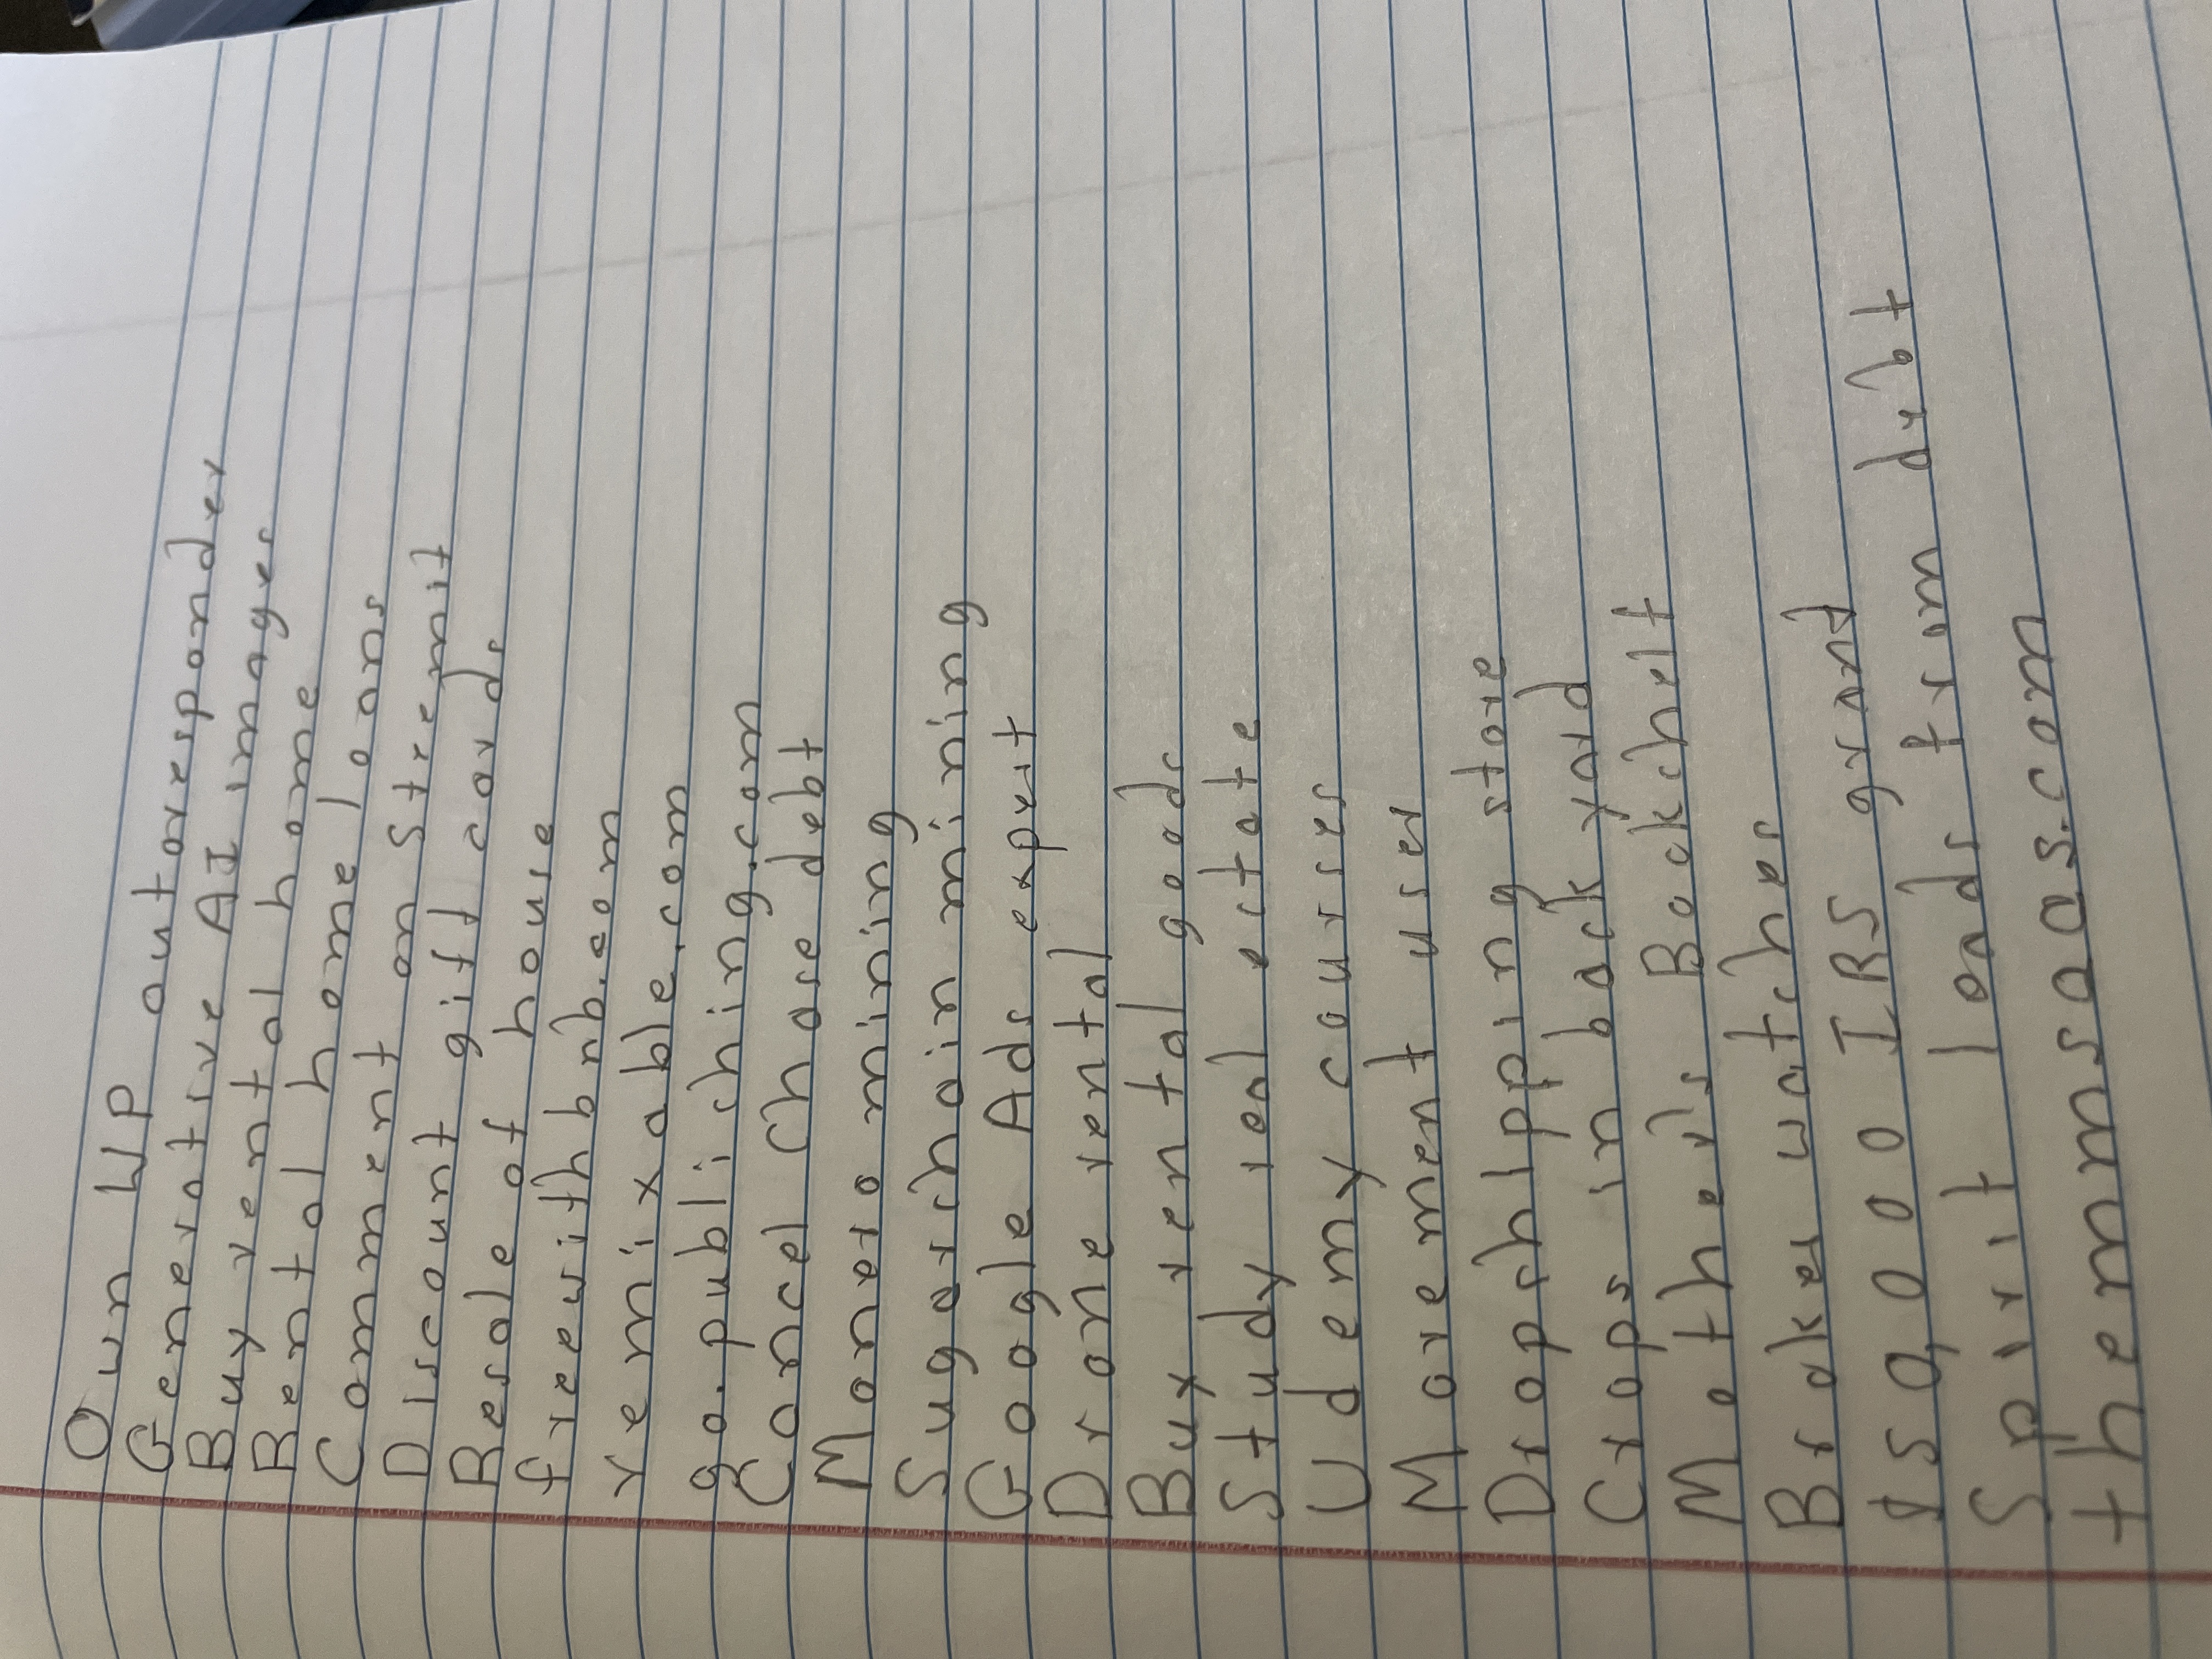 Own WP autoresponder
Generative AI images
Buy rental home
Rental home loans
Comment on Stream
Discount gift cards
Resale of house
freelify.com
remixable.com
go.publishing.com
Cancel Chase debt
Monero mining
Sugarchain mining
Google Ads expert
Drone rental
Buy rental goods
Study real estate
Udemy courses
Movement user
Dropshipping store
Crops in back yard
Mother's Backshelf
Broker watches
$50,000 IRS grand
Sprit leads from debt
themmsaas.com